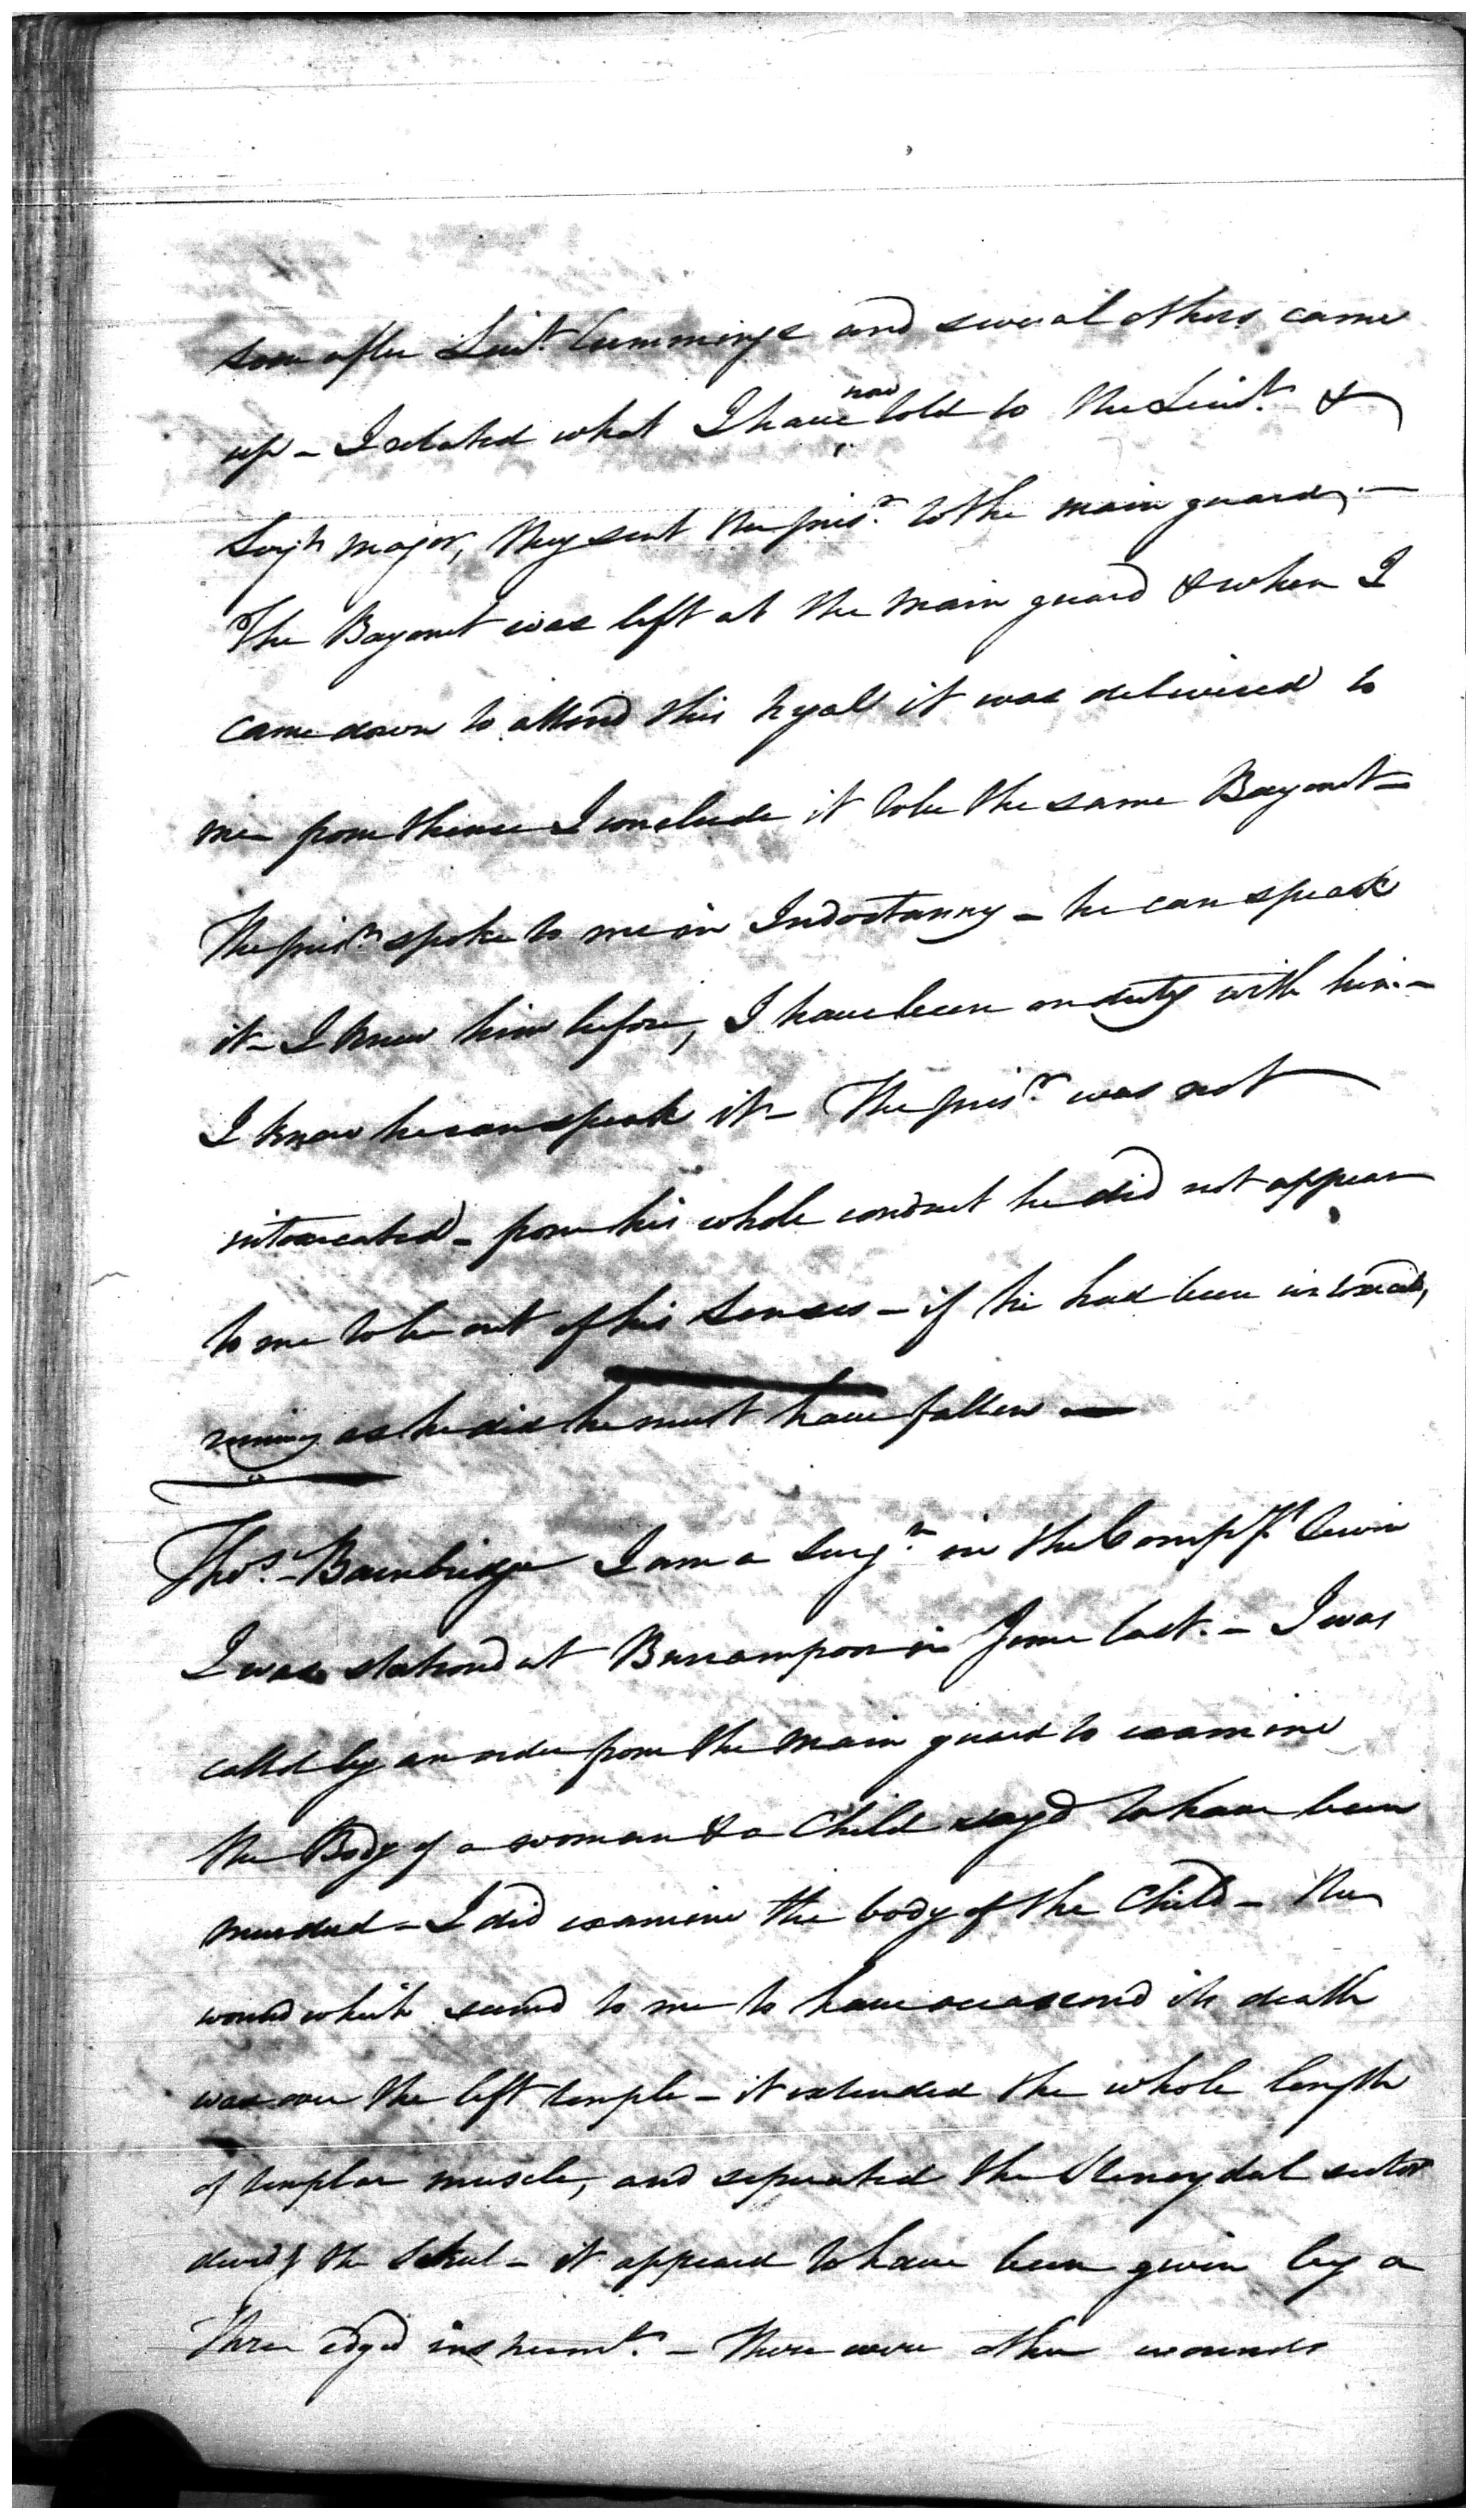 soon after Lieut. Cummings and several others came
up - I related what I have now told to the Lieut. &
Serjt. major, they sent the prisr. to the main guard, -
The Bayonet was left at the main guard & when I
came down to attend this tryal it was delivered to
me from thence I conclude it to be the same Bayonet -
The prisr. spoke to me in Indostanny - he can speak
it - I knew him before, I have been on duty with him. -
I know he can speak it - The prisr. was not
intoxicated - from his whole conduct he did not appear
to me to be out of his senses - if he had been intoxicatd,
runing as he did he must have fallen -
Thos. Bainbridge I am a Surgn. in the Compys.
I was stationd at Barrampoor in June last. - I was
calld by an order from the main guard to examine
the Body of a woman & a Child sayd to have been
murderd - I did examine the body of the Child - the
wound which seemd to me to have occasiond its death
was over the left temple - it extended the whole length
of templar muscle, and seperated the
of the Scul - it appeard to have been given by a
three edged instrumt. - There were other wounds